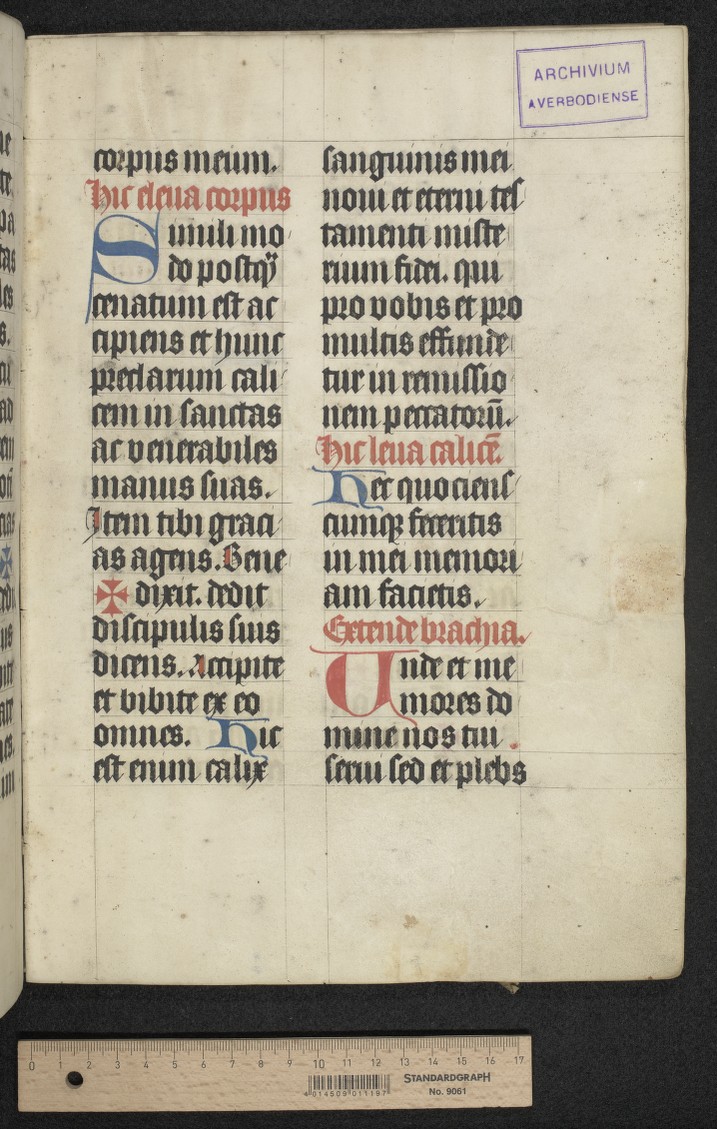 ARCHIVIUM
AVERBODIENSE
corpus meum.
hic eleua corpus
Simili mo
do postq̄
cenatum est ac
cipiens et hunc
preclarum cali
cem in sanctas
ac venerabiles
manus suas.
Item tibi graci
as agens. Bene
✠ dixit. dedit
discipulis suis
dicens. Accipite
et bibite ex eo
omnes. Hic
est enim calix
sanguinis mei
noui et eterni tes
tamenti miste
rium fidei. qui
pro vobis et pro
multis effunde
tur in remissio
nem peccatorū.
Hic leua calicē
Hec quociens
cumqꝫ feceritis
in mei memori
am facietis.
Extende brachia.
Unde et me
mores do
mine nos tui
serui sed et plebs
0 1 2 3 4 5 6 7 8 9 10 11 12 13 14 15 16 17
STANDARDGRAPH
No. 9061
4 014509 011197